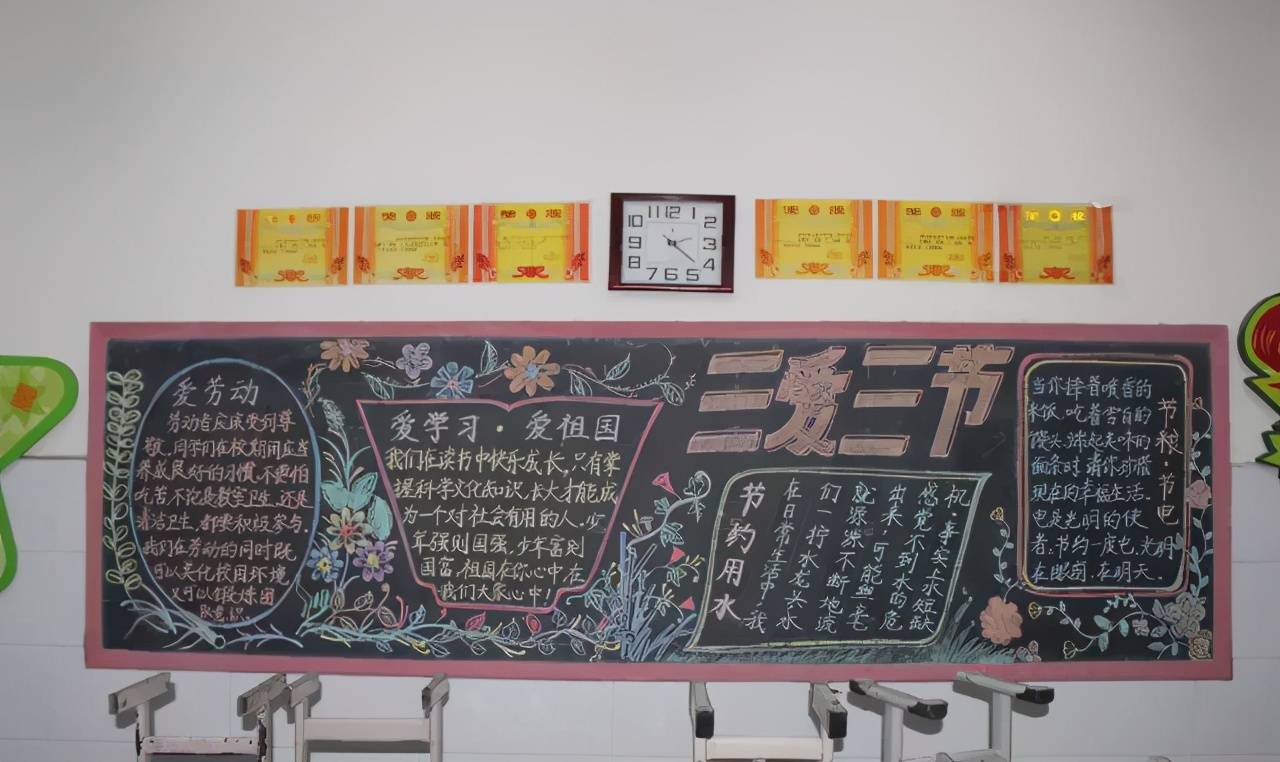 11 12 1
10 2
9 3
8 4
7 6 5
三爱三节
爱劳动
劳动者应该受到尊
敬,同学们在校期间应当
养成良好的习惯,不要怕
吃苦,不论是教室卫生,还是
清洁卫生,都要积极参与.
我们在劳动的同时既
可以美化校园环境
又可以锻炼团
队意识
爱学习·爱祖国
我们在读书中快乐成长,只有掌
握科学文化知识,长大才能成
为一个对社会有用的人.少
年强则国强,少年富则
国富,祖国在你心中,在
我们大家心中!
节约用水
在日常生活中,我
们一拧水龙头水
就源源不断地流
出来,可能丝毫
感觉不到水的危
机,事实上水短缺
节粮·节电
当你捧着喷香的
米饭,吃着雪白的
馒头,
面条时,请你珍惜
现在的幸福生活.
电是光明的使
者,节约一度电,光明
在眼前,在明天.